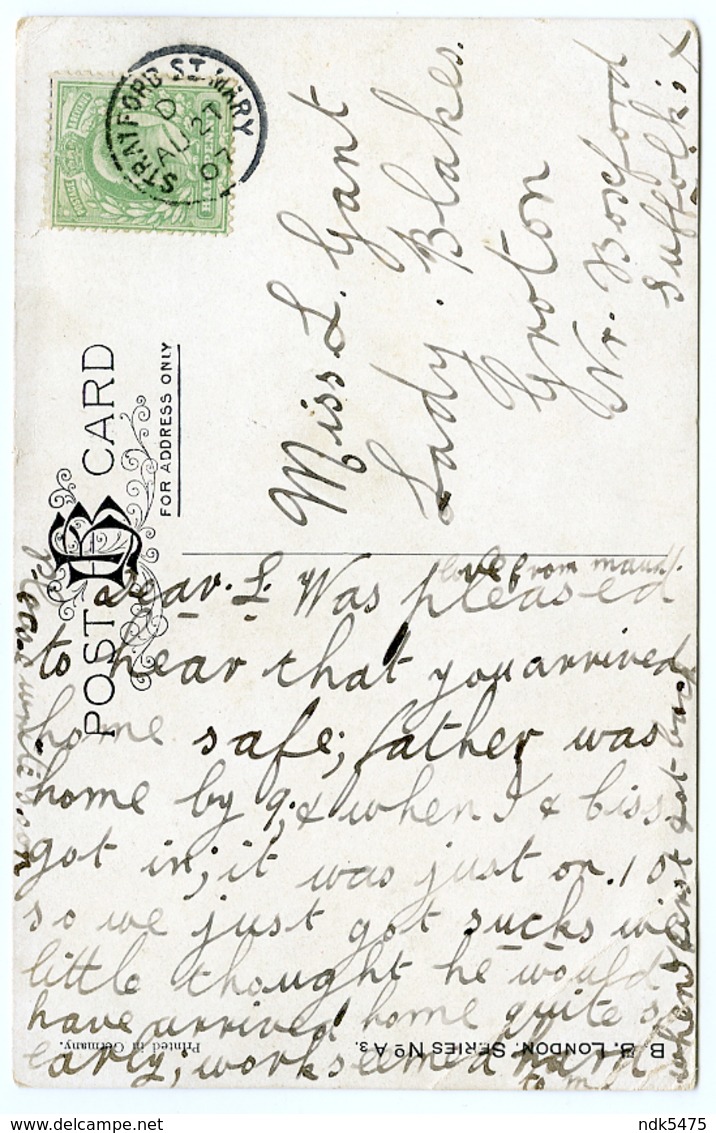 STRATFORD ST. MARY
D
AU 27
07
POST CARD
FOR ADDRESS ONLY
Miss L. Gant
Lady. Blakes.
Groton
Nr. Boxford
Suffolk.
love from maud.
Dear. L. Was pleased
to hear that you arrived
home safe; father was
home by 9; & when I & Ciss
got in; it was just on. 10
so we just got sucks we
little thought he would
have arrived home quite so
early; work seemed hard
to me
when I first got back
please write soon
B. B. LONDON. SERIES No A 3.
Printed in Germany.
ndk5475